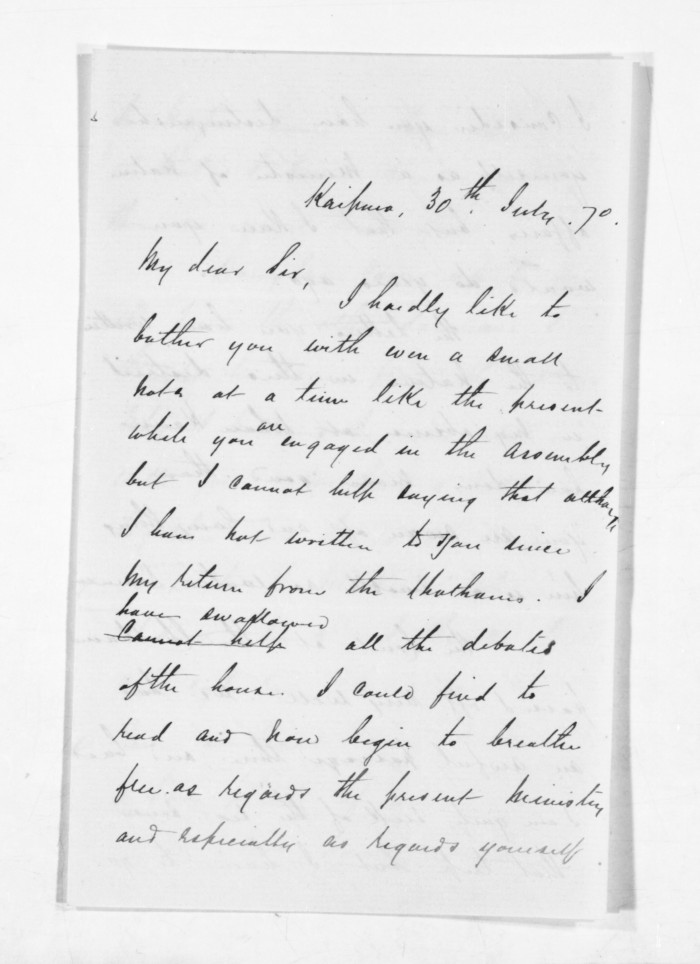 Kaipara, 30th July. 70.
My dear Sir,
I hardly like to
bother you with even a small
note at a time like the present
while you are engaged in the assembly
but I cannot help saying that although
I have not written to you since
my return from the Chathams. I
have swallowed
cannot help all the debates
of the house I could find to
read and now begin to breathe
free as regards the present Ministry
and especially as regards yourself.